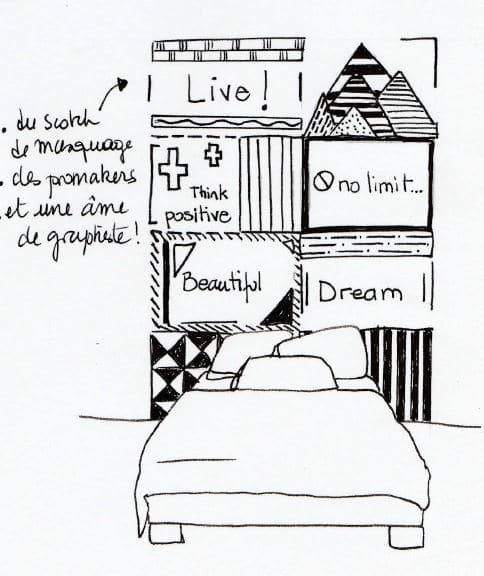 Live!
. du scotch
de masquage
. des promakers
et une âme
de graphiste!
Think
positive
no limit...
Beautiful
Dream